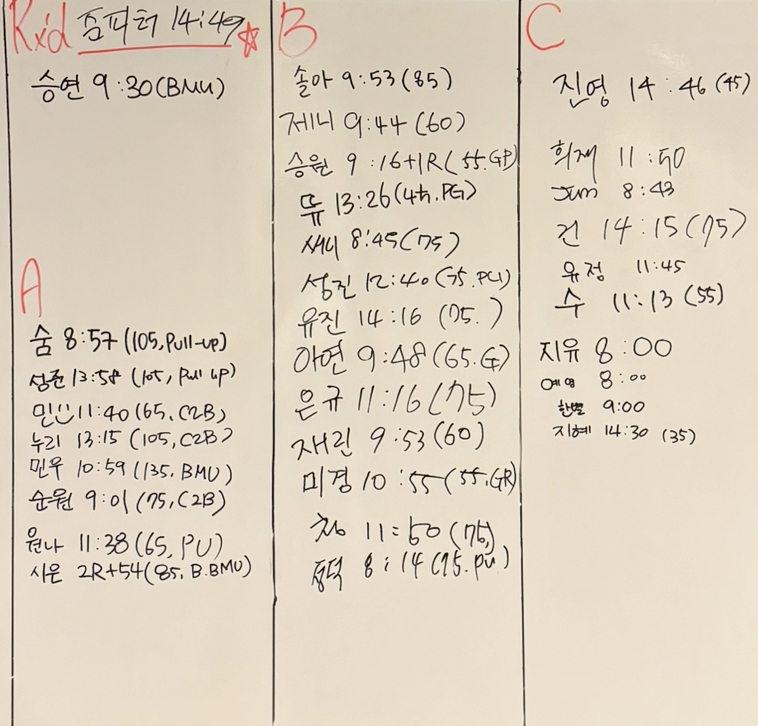 Rx'd 줌피터 14:49
승연 9:30(BMU)
A
숨 8:57 (105, Pull-up)
성준 13:58 (105, Pull up)
민 11:40 (65, C2B)
누리 13:15 (105, C2B)
민우 10:59 (135, BMU)
순원 9:01 (75, C2B)
원나 11:38 (65, PU)
시은 2R+54(85, B.BMU)
B
솔아 9:53(85)
제니 9:44 (60)
승원 9:16+1R(55.GP)
뜌 13:26
써니 8:45(75)
성진 12:40
유진 14:16 (75.)
아연 9:48(65.G)
은규 11:16(75)
재린 9:53(60)
미경 10:55(55.GR)
창 11:50 (75)
8:14 (75.PU)
C
진영 14:46 (45)
희재 11:50
Jum 8:43
건 14:15(75)
유정 11:45
수 11:13 (55)
지유 8:00
예영 8:00
한별 9:00
지혜 14:30 (35)